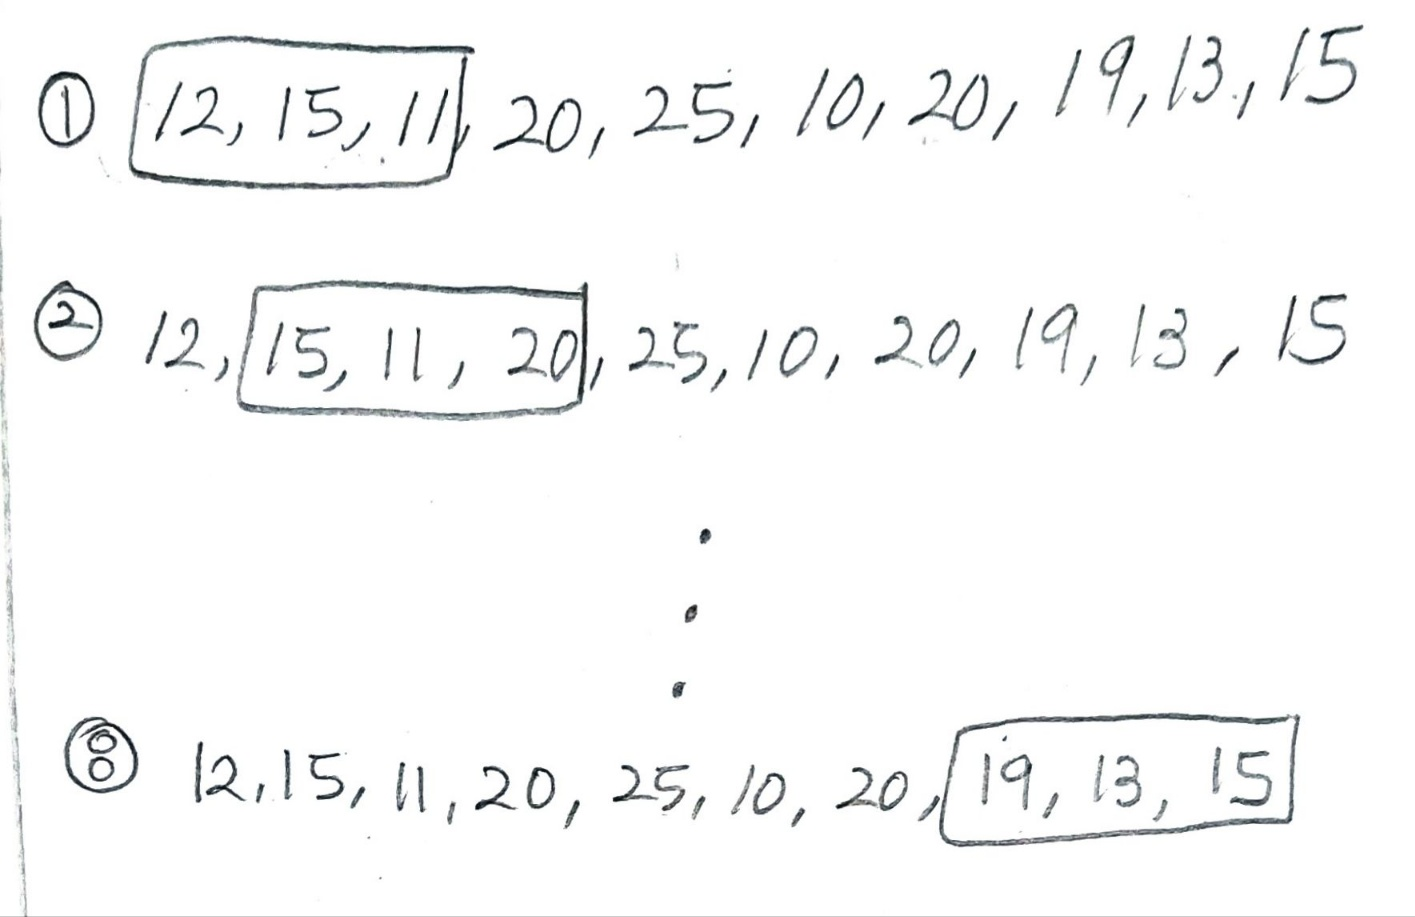 ① 12, 15, 11, 20, 25, 10, 20, 19, 13, 15
② 12, 15, 11, 20, 25, 10, 20, 19, 13, 15
⑧ 12, 15, 11, 20, 25, 10, 20, 19, 13, 15